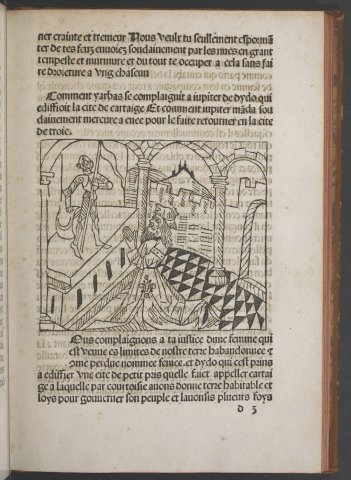 ner crainte et tremeur Nous veulx tu seullement espouuē
ter de tes feuz enuoiez soudainement par les nues en grant
tempeste et murmure et du tout te occuper a cela sans fai
re droicture a vng chascun
Comment yarbas se complaignit a iupiter de dydo qui
ediffioit la cite de cartaige Et comment iupiter mãda sou
dainement mercure a enee pour le faire retourner en la cite
de troie.
Ous complaignons a ta iustice dune femme qui
est venue es limites de nostre terre habandonnee ⁊
cõme perdue nommee fenice. et dydo qui cest prins
a ediffier vne cite de petit pris quelle faict appeller cartai
ge a laquelle par courtoisie auons donne terre habitable et
loys pour gouuerner son peuple et lauons plueurs foys
d 3